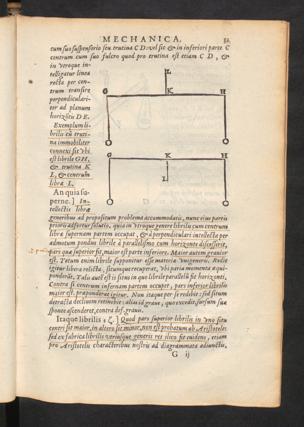 MECHANICA.
cum suo suspensorio seu trutina C D: vel sit & in inferiori parte C
centrum cum suo fulcro quod pro trutina est etiam C D, &
in vtroque in-
telligatur linea
recta per cen-
trum transire
perpendiculari-
ter ad planum
horizōtis D E.
Exemplum li-
brilis cū truti-
na immobiliter
connexi sit vbi
est librile G H,
& trutina K
L, & centrum
libræ L.
L
G K H
G K H
L
An quia su-
perne.] In-
tellectis libræ
generibus ad propositum problema accommodatis, nunc eius partis
priori adfertur solutio, quia in vtroque genere librilis cum centrum
libræ supernam partem occupat, & à perpendiculari intellecta per
admotum pondus librile à parallelismo cum horizonte discesserit,
pars quæ superior fit, maior est parte inferiore. Maior autem grauior
est. Totum enim librile supponitur esse materiæ vniigeneris. Recte
igitur libera relicta, sursumque recurret, vbi paria momenta æqui-
ponderent. Talis autem est is situs in quo librile parallelū fit horizonti.
Contra si centrum infernam partem occupet, pars inferior librilis
maior est, præponderat igitur. Non itaque per se redibit: sed sursum
detracta declinem retinebit: alias id graue, quod excedit, sursum sua
sponte ascenderet, contra def. grauis.
Itaque librilis, &c.] Quod pars superior librilis in vno situ
centri sit maior, in altero sit minor, non est probatum ab Aristotele:
sed ex fabrica librilis vtriusque generis res ilico fit euidens, etiam
pro Aristotelis characteribus nostris ad diagrammata adiunctis,
G ij